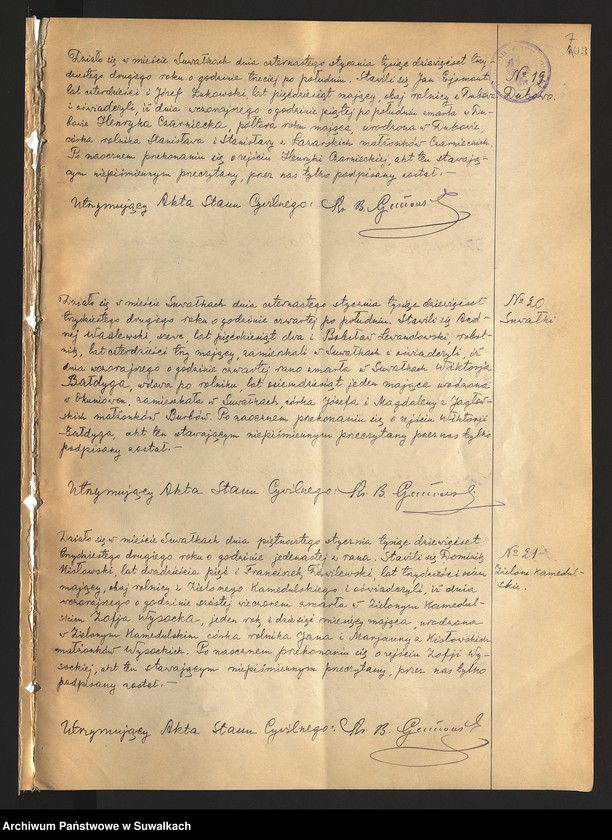 7
103
Działo się w mieście Suwałkach dnia czternastego stycznia tysiąc dziewięćset trzy-
dziestego drugiego roku o godzinie trzeciej po południu. Stawili się Jan Ejsmont
lat czterdzieści i Józef Żukowski, lat pięćdziesiąt mający, obaj rolnicy z Dubowa
i oświadczyli, iż dnia wczorajszego o godzinie piątej po południu zmarła w Du-
bowie Henryka Czarniecka, półtora roku mająca, urodzona w Dubowie
córka rolnika Stanisława i Stanisławy z Łazarskich małżonków Czarnieckich.
Po naocznem przekonaniu się o zejściu Henryki Czarnieckiej, akt ten stawają-
cym niepiśmiennym przeczytany, przez nas tylko podpisany został.—
Utrzymujący Akta Stanu Cywilnego: Ks. B.
№ 19
Dubowo.
Działo się w mieście Suwałkach dnia czternastego stycznia tysiąc dziewięćset
trzydziestego drugiego roku o godzinie czwartej po południu. Stawili się
szewc, lat pięćdziesiąt dwa i Bolesław Lewandowski, robot-
nik, lat czterdzieści trzy mający, zamieszkali w Suwałkach i oświadczyli, iż
dnia wczorajszego o godzinie czwartej rano zmarła w Suwałkach Wiktorja
Bałdyga, wdowa po rolniku, lat osiemdziesiąt jeden mająca urodzona
w zamieszkała w Suwałkach, córka Józefa i Magdaleny z
małżonków Po naocznem przekonaniu się o zejściu Wiktorji
Bałdyga, akt ten stawającym niepiśmiennym przeczytany przez nas tylko
podpisany został.—
Utrzymujący Akta Stanu Cywilnego: Ks. B.
№ 20.
Suwałki
Działo się w mieście Suwałkach dnia piętnastego stycznia tysiąc dziewięćset
trzydziestego drugiego roku o godzinie jedenastej z rana. Stawili się Dominik
lat dwadzieścia pięć i Franciszek lat trzydzieści i osiem
mający, obaj rolnicy z Zielonego Kamedulskiego i oświadczyli, iż dnia
wczorajszego o godzinie szóstej wieczorem zmarła w Zielonym Kamedul-
skiem Zofja Wysocka, jeden rok i dziesięć miesięcy mająca, urodzona
w Zielonym Kamedulskim córka rolnika Jana i Marjanny z
małżonków Wysockich. Po naocznem przekonaniu się o zejściu Zofji Wy-
sockiej, akt ten stawającym niepiśmiennym przeczytany, przez nas tylko
podpisany został.—
Utrzymujący Akta Stanu Cywilnego: Ks. B.
№ 21
Zielone Kamedul-
skie.
Archiwum Państwowe w Suwałkach